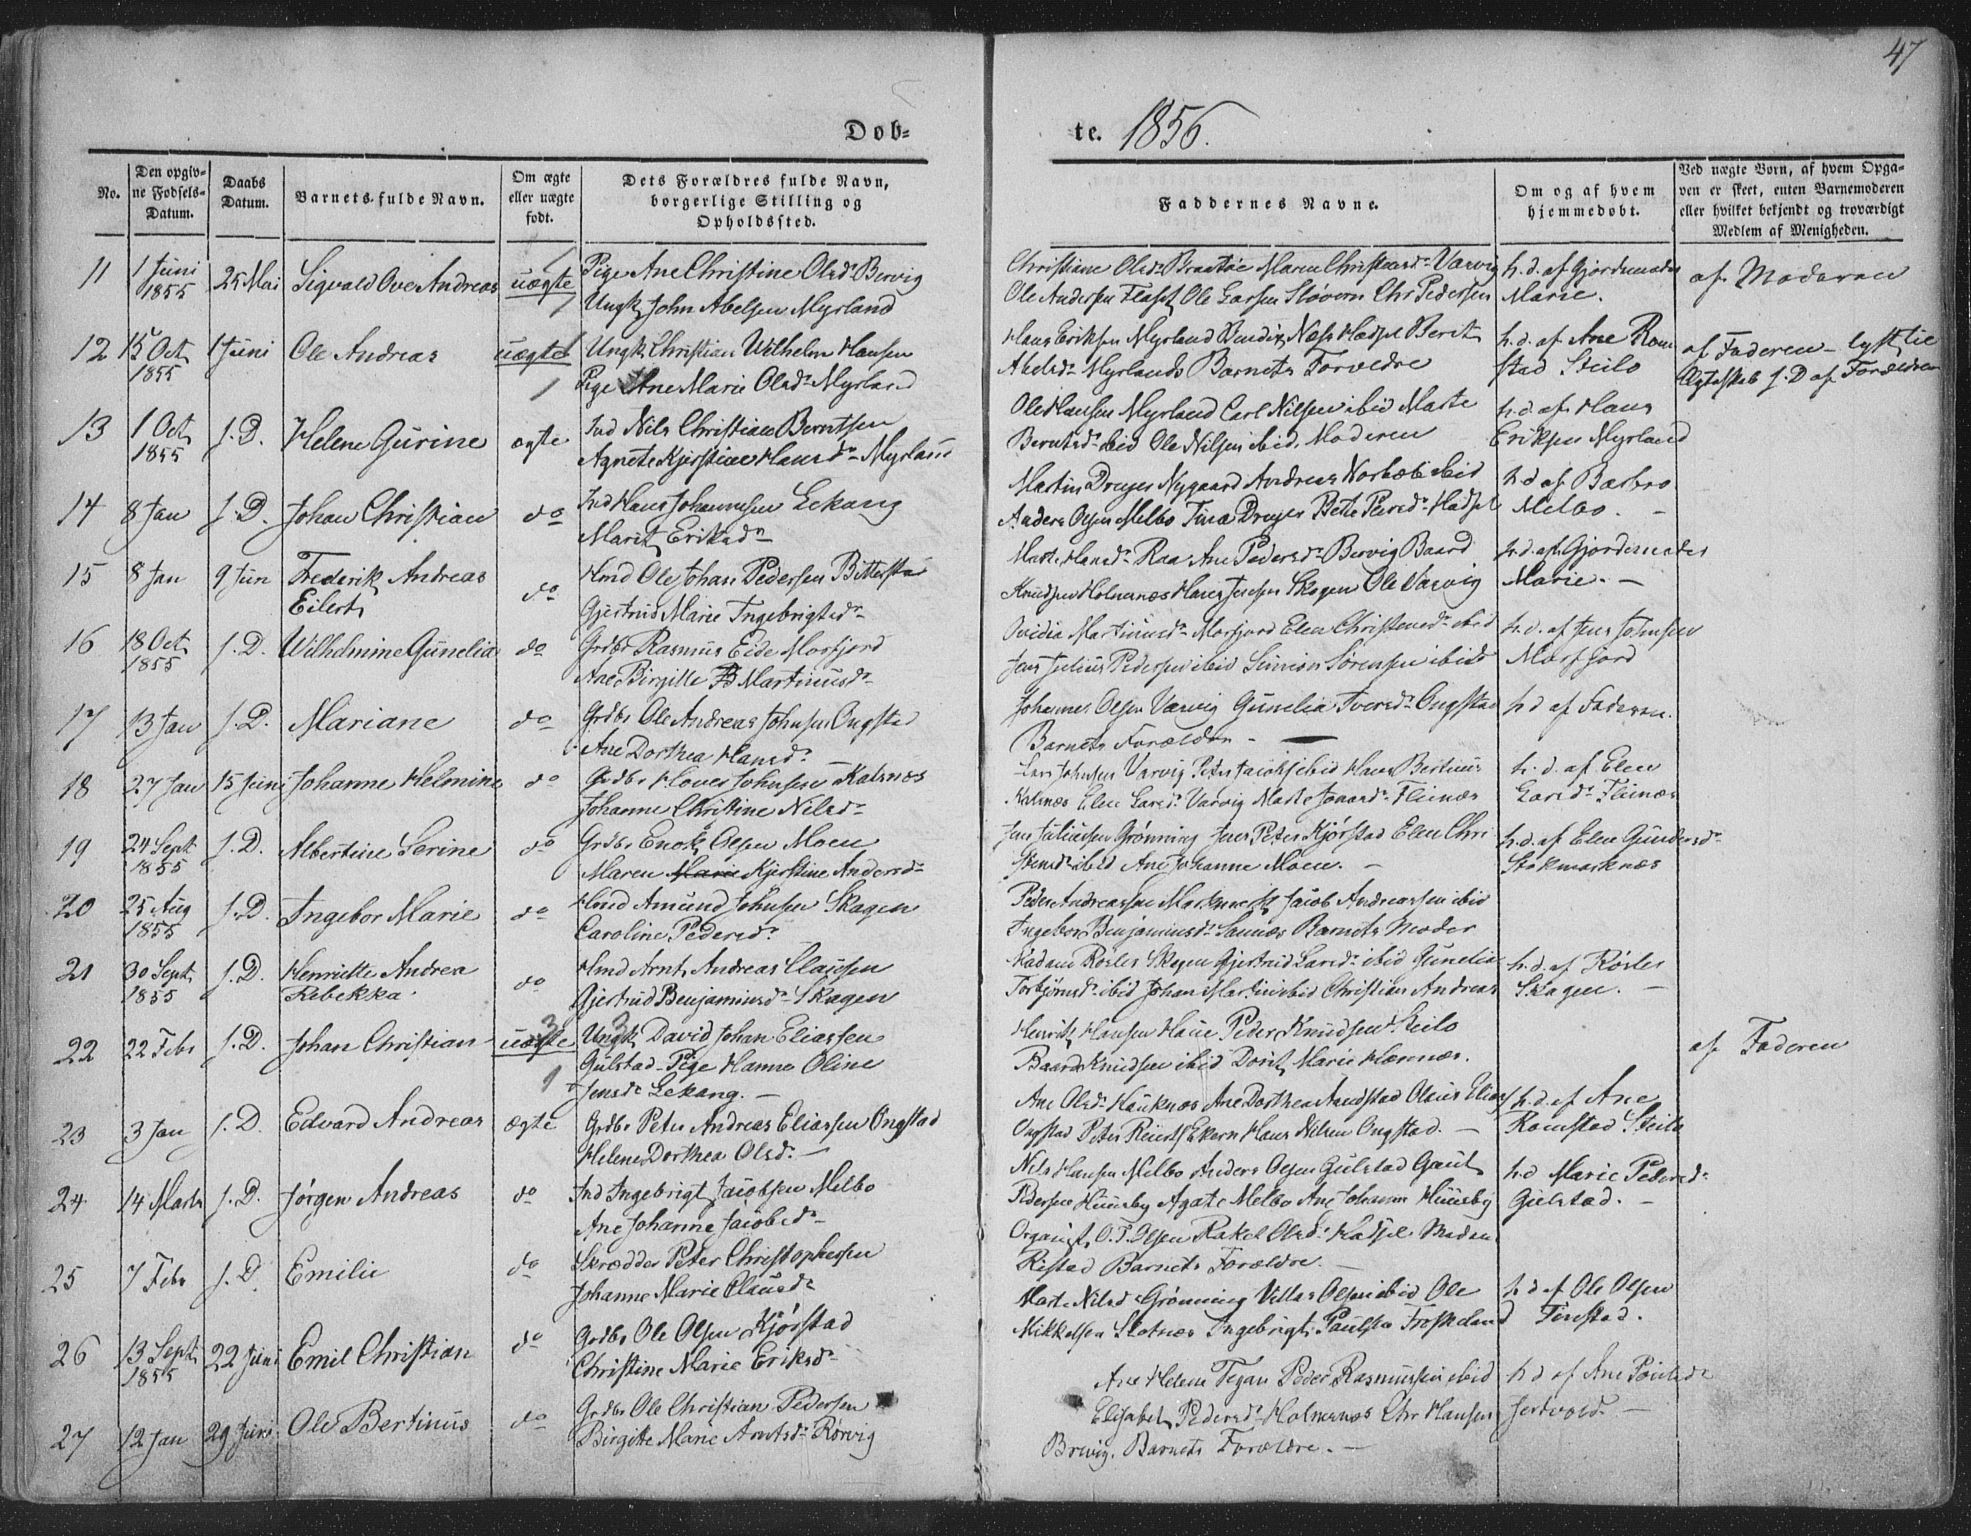 47
Døb-
te. 1856.
No.
Den opgiv-
ne Fødsels-
Datum.
Daabs
Datum.
Barnets fulde Navn.
Om ægte
eller uægte
født.
Dets Forældres fulde Navn,
borgerlige Stilling og
Opholdssted.
Faddernes Navne.
Om og af hvem
hjemmedøbt.
Ved uægte Børn, af hvem Opga-
ven er skeet, enten Barnemoderen
eller hvilket bekjendt og troværdigt
Medlem af Menigheden.
11 1 Juni 1855 25 Mai Sigvald Ove Andreas uægte Pige Ane Christine Olsdr Borvig
Ungk John Abelsen Myrland
Christiane Olsdr Maren Christensdr Varvig
Ole Andersen Ole Larsen Støvern Chr Pedersen
h. d. af Gjordemoder
Marie.
af Moderen
12 15 Oct 1855 1 Juni Ole Andreas uægte Ungk Christian Wilhelm Hansen
Pige Ane Marie Olsdr Myrland
Hans Eriksen Myrland Hadsel Berit
Abelsdr Myrlands Barnets Forældre
h. d. af Ane Rom
stad Steilo
af Faderen
Ægteskab s. D. af Forældrene
13 1 Oct 1855 s. D. Helene Gurine ægte Ind Nils Christian Berntsen
Agnete Kjerstine Hansdr Myrland
Ole Hansen Myrland Carl Nilsen ibid Marte
Berntsdr ibid Ole Nilsen ibid. Moderen
h. d. af Hans
Eriksen Myrland
14 8 Jan s. D. Johan Christian do Ind Hans Johannesen Lekang
Marit Eriksdr
Martin Dreyer Nygaard Andreas ibid
Anders Olsen Melbo Tina Dreyer Hadsel
h. d. af Barbro
Melbo. -
15 8 Jan 9 Jun Frederik Andreas
Eilert do Hmd Ole Johan Pedersen Bitterstad
Gjertrud Marie Ingebrigtsdr
Marte Hansdr Raa Ane Pedersdr Borvig Baard
Knudsen Holmenæs Hans Jensen Skagen Ole Varvig
h. d. af Gjordemoder
Marie. -
16 18 Oct 1855 s. D. Wilhelmine Gunelia do Grdbr Rasmus Eide Morfjord
Ane Birgitte Martinusdr
Ovidia Martinusdr Morfjord Elen Christensdr ibid
Jens Julius Pedersen ibid Simon Sørensen ibid
h. d. af Jens Johnsen
Morfjord
17 13 Jan s. D. Mariane do Grdbr Ole Andreas Johnsen Ongstad
Ane Dorthea Hansdr -
Johannes Olsen Varvig Gunelia Iversdr Ongstad
Barnets Forældre -
h. d. af Faderen.
18 27 Jan 15 Juni Johanne Helmine do Grdbr Johnsen Kalnæs
Johanne Christine Nilsdr
Lars Johnsen Varvig Peter Jacobs ibid Hans Bertinus
Kalnæs Elen Larsdr Varvig Marte Flinæs
h. d. af Elen
Larsdr Flinæs
19 24 Sept 1855 s. D. Albertine Serine do Grdbr Enok Olsen Moen
Maren Marie Kjerstine Andersdr
Jens Juliussen Grønning Jens Peter Kjørstad Elen Chri
stensdr ibid Ane Johanne Moen. -
h. d. af Elen Gundersdr
Stokmarknæs
20 25 Aug 1855 s. D. Ingebor Marie do Hmd Amund Johnsen Skagen
Caroline Pedersdr
Peder Andreassen Jacob Andreassen ibid
Ingebor Benjaminsdr Sannæs Barnets Moder
21 30 Sept 1855 s. D. Henriette Andrea
Rebekka. do Hmd Arnt Andreas Clausen
Gjertrud Benjaminsdr Skagen
Madam Røsler Skagen Gjertrud Larsdr ibid Gunelia
Torbjørnsdr ibid Johan Martin ibid Christian Andreas
h. d. af Røsler
Skagen. -
22 22 Febr s. D. Johan Christian uægte Ungk David Johan Eliassen
Gulstad - Pige Hanna Oline
Jensdr Lekang. -
Henrik Hansen Peder Knudsen Steilo
Baard Knudsen ibid Dorit Marie Hennæs.
af Faderen
23 3 Jan s. D. Edvard Andreas ægte Grdbr Peter Andreas Eliassen Ongstad
Helene Dorthea Olsdr. -
Ane Olsdr Hauknæs Ane Dorthea Olaus Elias
Ongstad Peter Ekern Hans Nilsen Ongstad. -
h. d. af Ane
Romstad Steilo
24 14 Marts s. D. Jørgen Andreas do Ind Ingebrigt Jacobsen Melbo
Ane Johanne Jacobsdr
Nils Hansen Melbo Anders Olsen Gulstad Gaut
Pedersen Huusby Agate Melbo Ane Johanna Huusby
h. d. Marie Pedersdr
Gulstad. -
25 7 Febr s. D. Emilie do Skrædder Peter Christophersen
Johanne Marie Clausdr
Organist O. T. Olsen Rakel Olsdr Hadsel Madm
Ristad Barnets Forældre. -
26 13 Sept 1855 22 Juni Emil Christian do Grdbr Ole Olsen Kjørstad
Christine Marie Eriksdr
Marte Nilsdr Grønning Villas Olsen ibid Ole
Mikkelsen Slotnæs Ingebrigt Paulsen Froskeland
h. d. af Ole Olsen
Finstad.
27 12 Jan 29 Juni Ole Bertinus do Grdbr Ole Christian Pedersen
Birgitte Marie Arntsdr Rørvig
Ane Helene Peder Rasmussen ibid
Elisabet Pedersdr Holmenæs Chr Hansen
Brevig. Barnets Forældre. -
h. d. af Ane